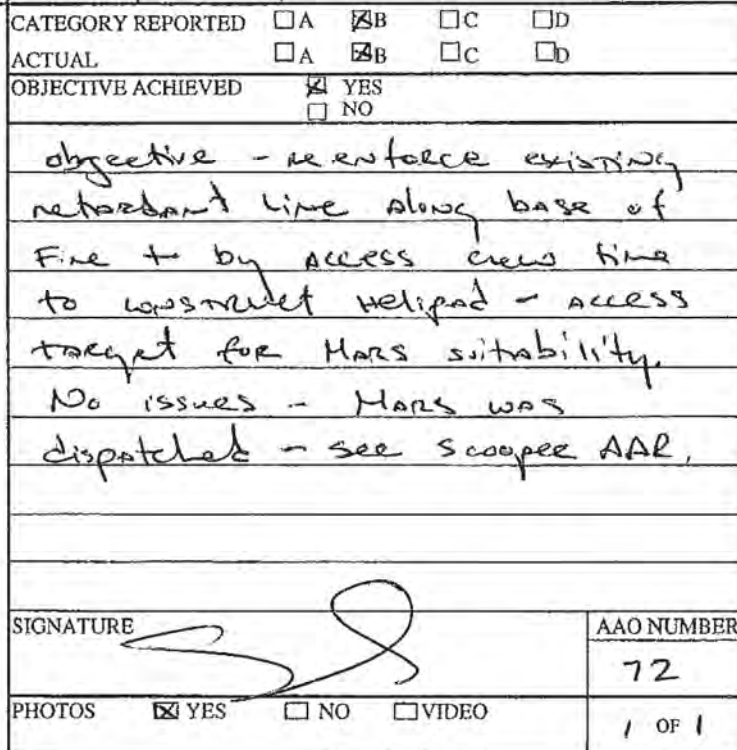 CATEGORY REPORTED ☐A ☒B ☐C ☐D
ACTUAL ☐A ☒B ☐C ☐D
OBJECTIVE ACHIEVED ☒ YES
☐ NO
objective - re enforce existing
retardant line along base of
Fire to by access crew time
to construct Helipad - access
target for MARS suitability.
No issues - MARS was
dispatched - see scooper AAR.
SIGNATURE
AAO NUMBER
72
PHOTOS ☒ YES ☐ NO ☐ VIDEO
1 OF 1